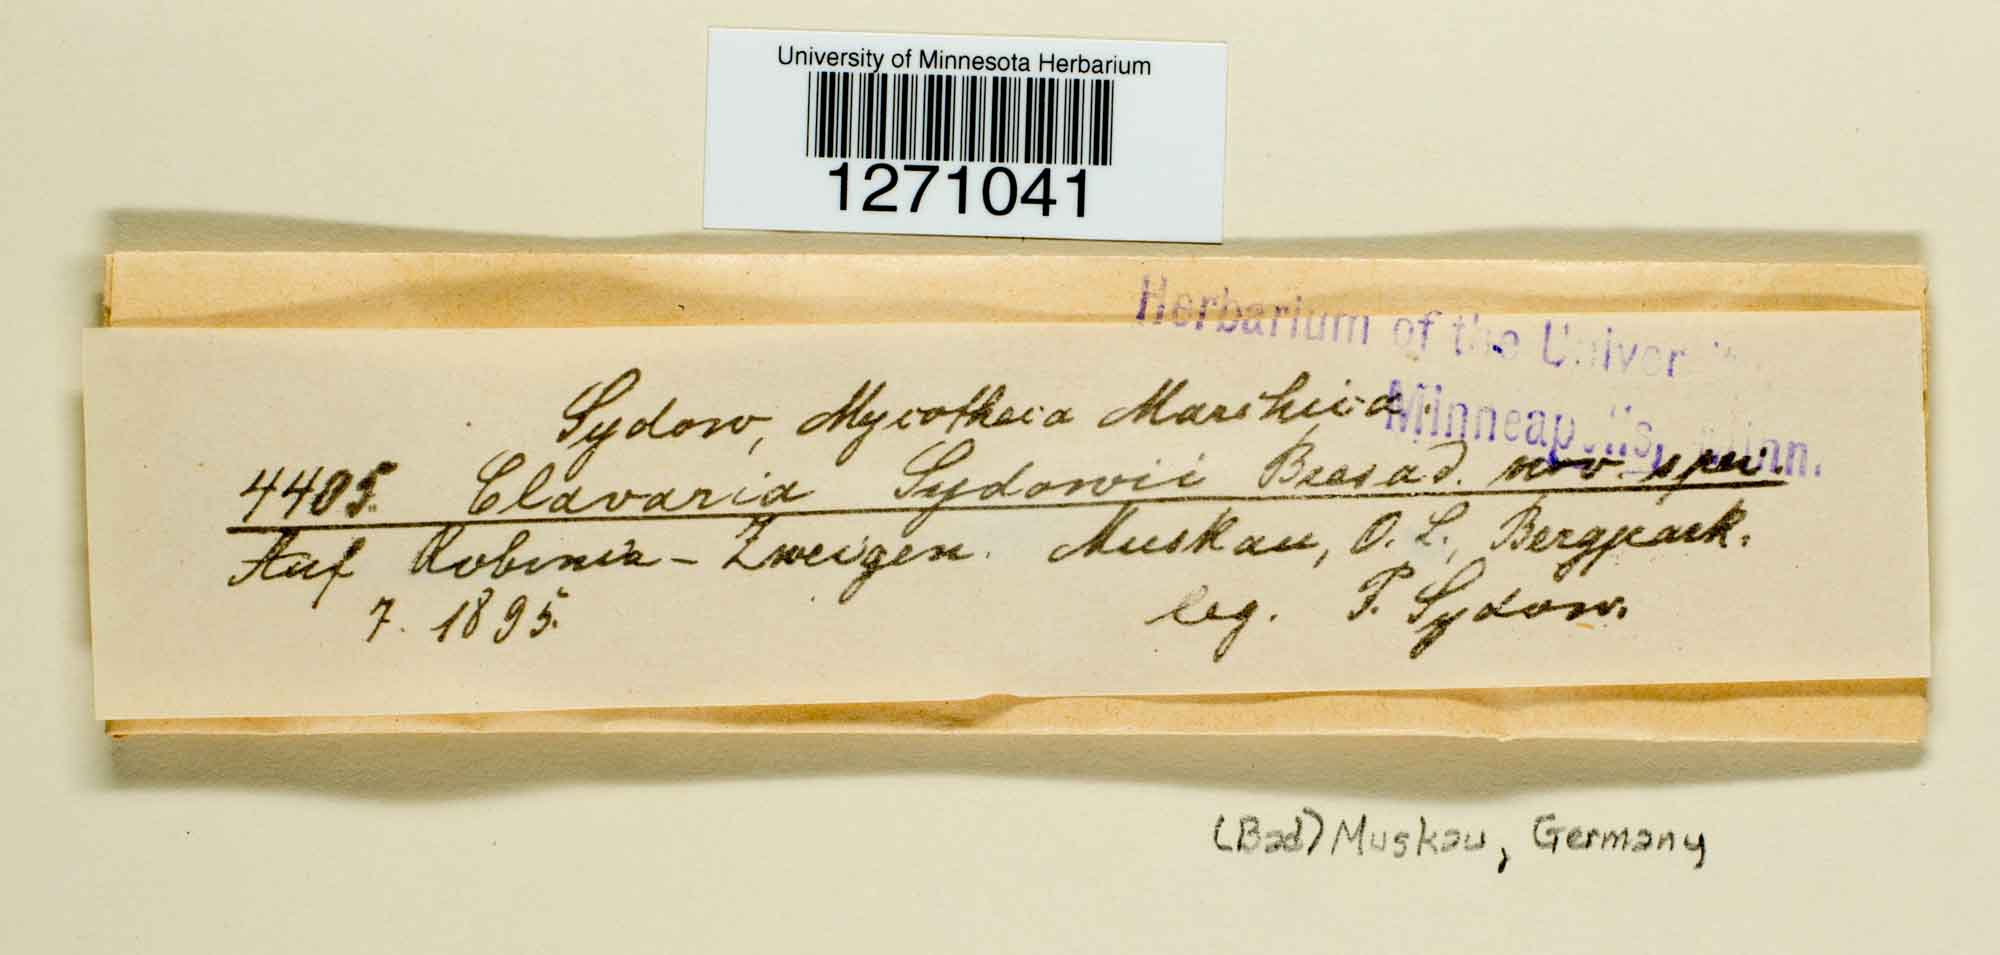 University of Minnesota Herbarium
1271041
Herbarium of the Univer
Minneapolis, Minn.
Sydow, Mycotheca Marchica.
4405. Clavaria Sydowii Bresad. nov. spec.
Auf Robinia-Zweigen. Muskau, O. L., Bergpark.
7. 1895. leg. P. Sydow.
(Bad) Muskau, Germany